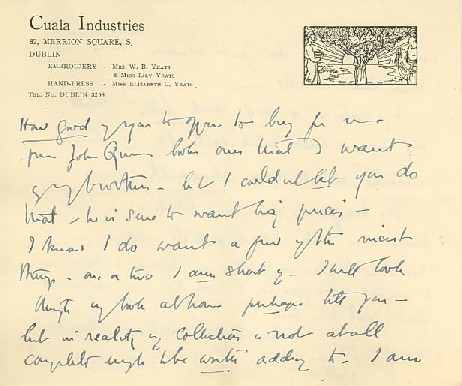 Cuala Industries
82, MERRION SQUARE, S,
DUBLIN
EMBROIDERY - MRS W. B. YEATS
& MISS LILY YEATS
HAND-PRESS - MISS ELIZABETH C. YEATS
TEL. No. DUBLIN
How good of you to offer to buy for me
from John Quinn books ones that I want
of my brothers - but I could not let you do
that - he is sure to want big prices -
I know I do want a few of the nicest
things - one or two I am short of. I will look
through my books at home perhaps tell you -
but in reality my collection is not at all
complete enough to be worth adding to. I am